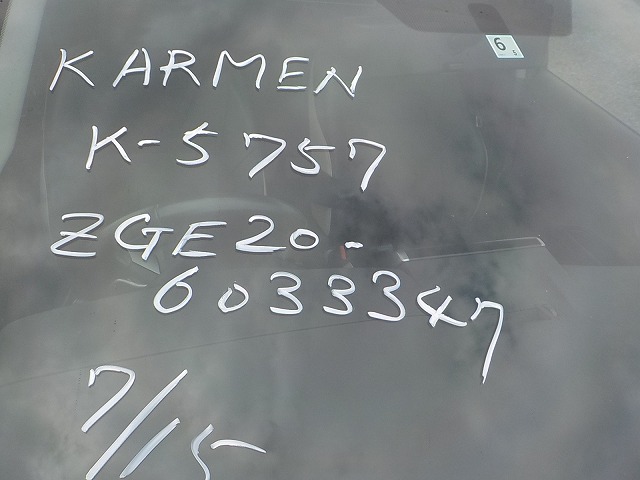 KARMEN
K-5757
ZGE20-
6033347
7/15
6 5